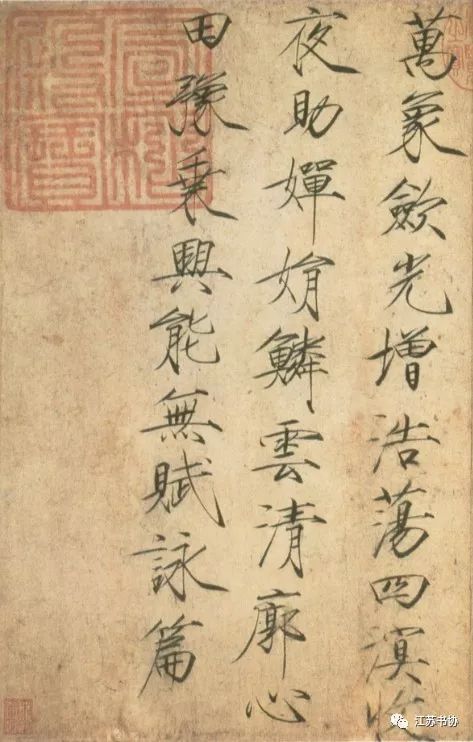 萬象歛光增浩蕩四溟收
夜助嬋娟鱗雲清廓心
田豫乘興能無賦詠篇
江苏书协